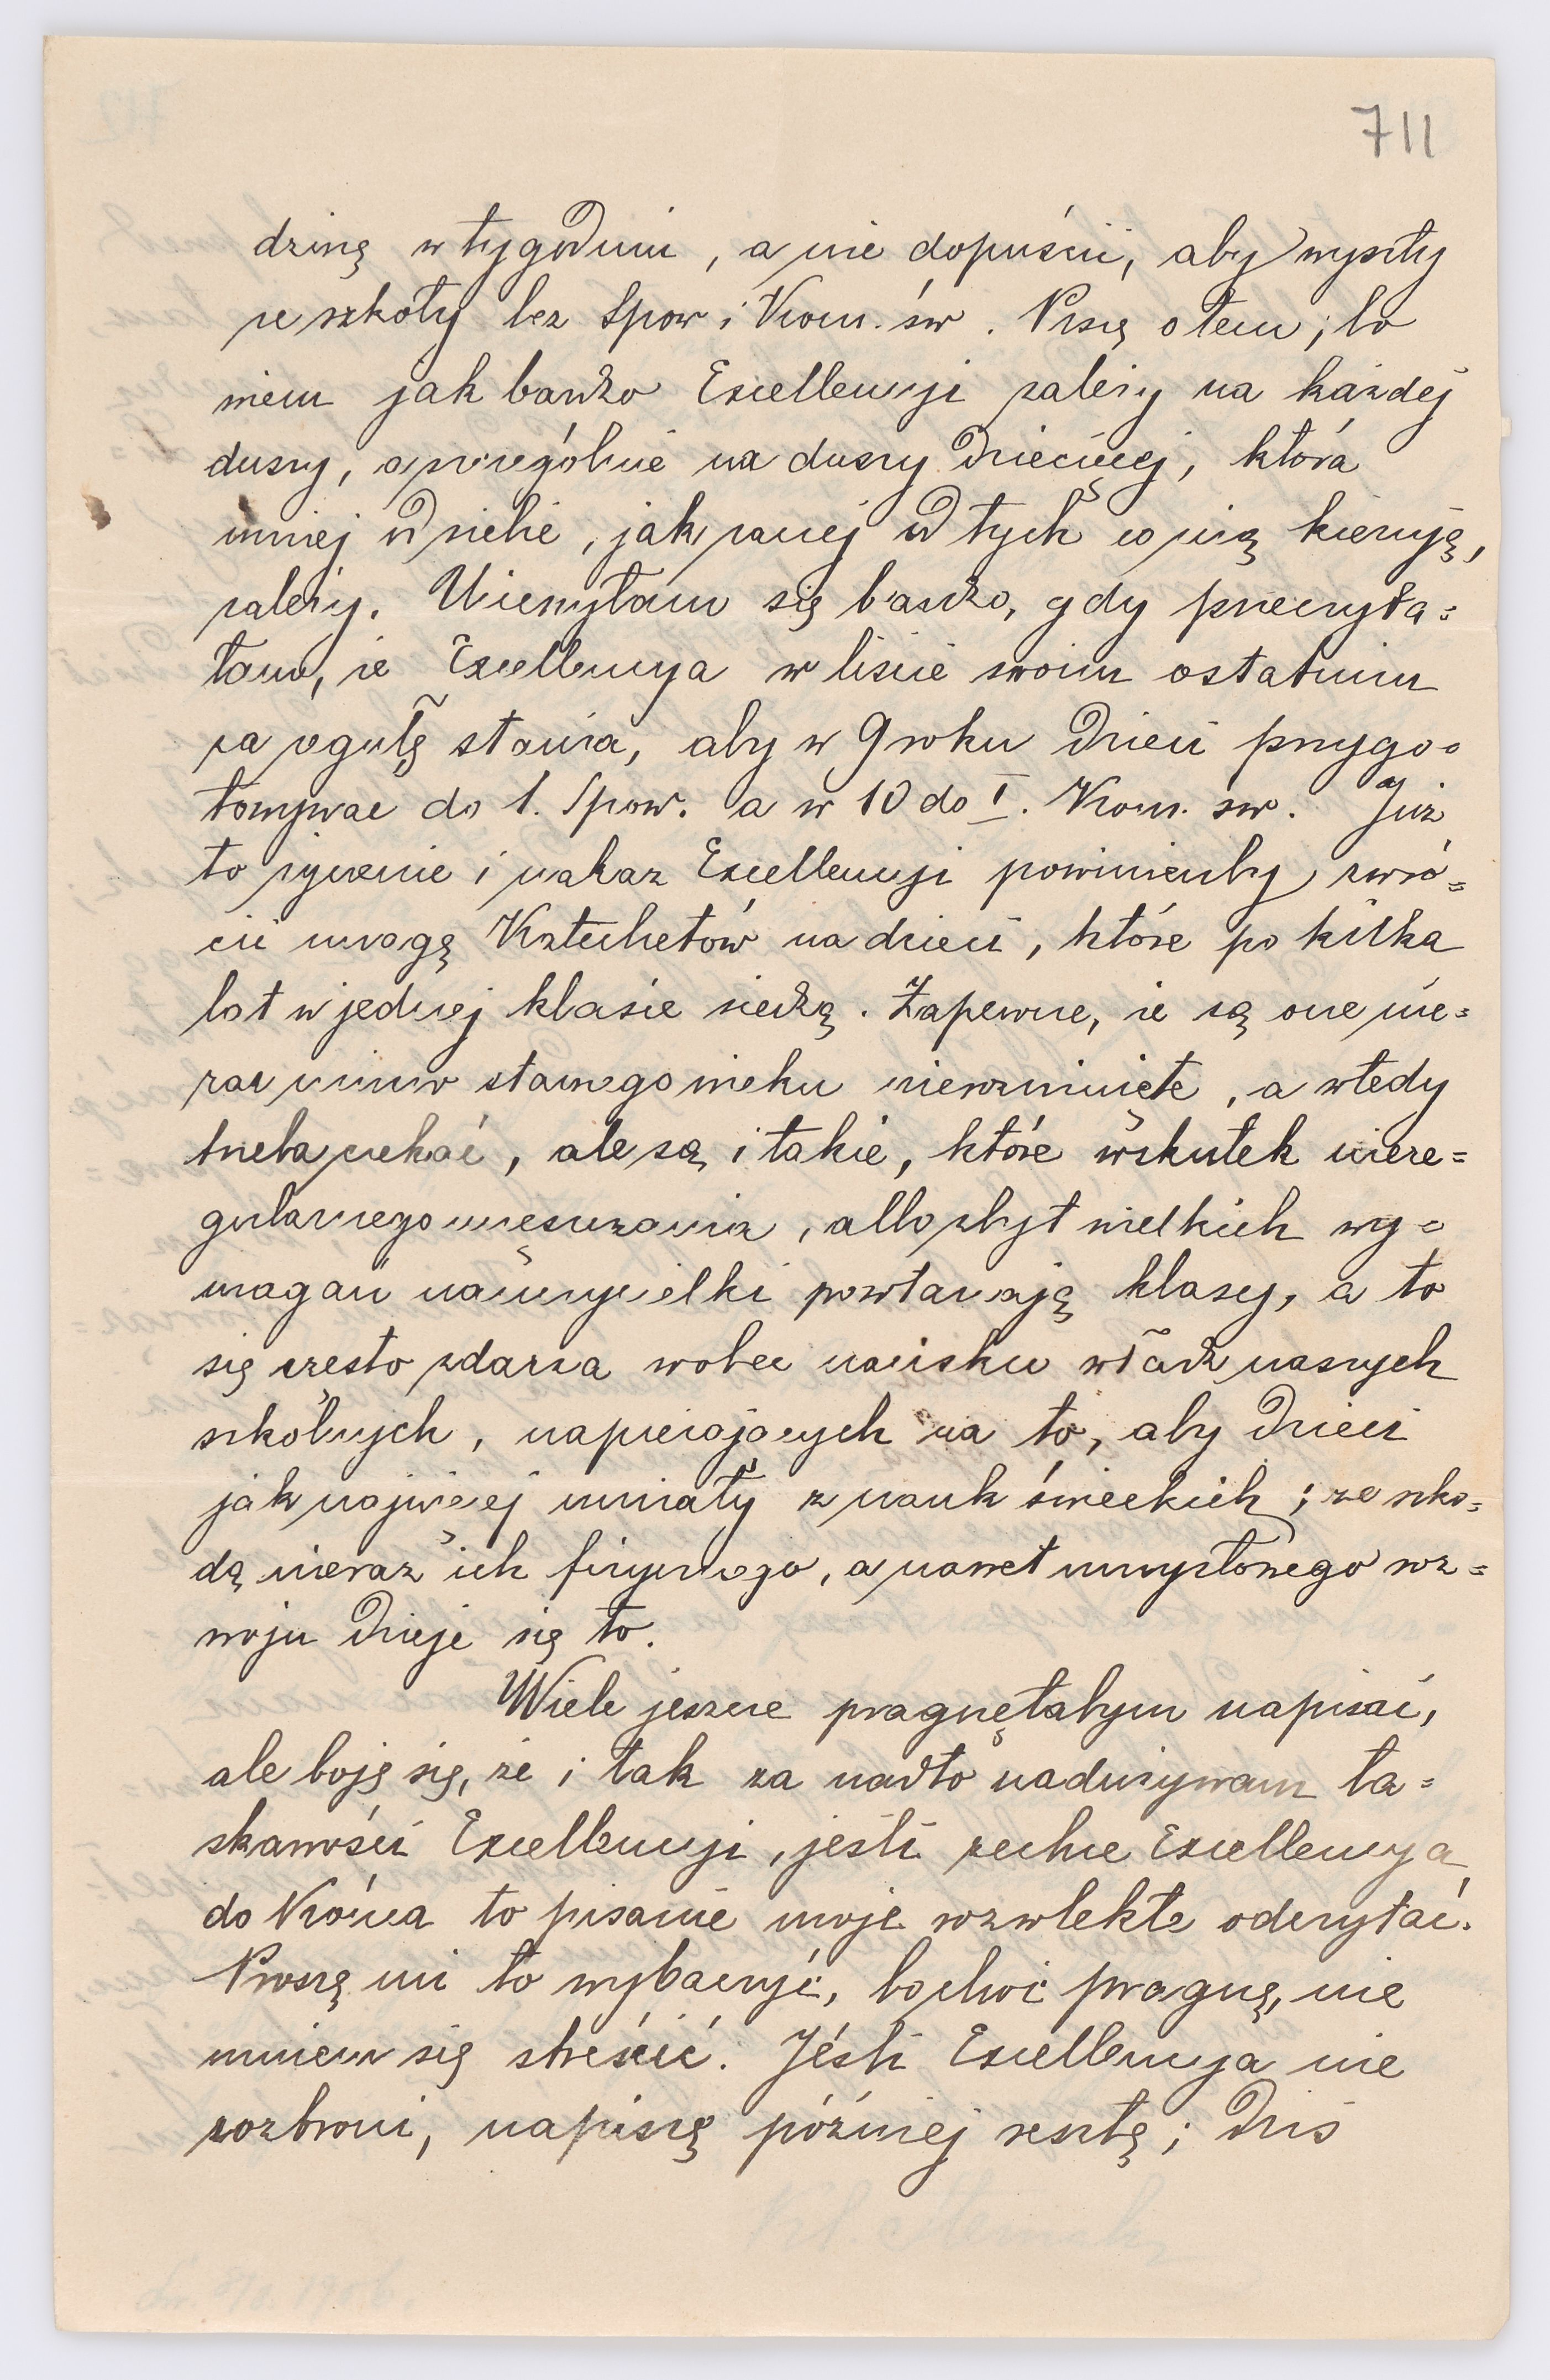 711
dzinę w tygodniu, a nie dopuścić, aby wyszły
ze szkoły bez Spow i Kom. św. Piszę o tem, bo
wiem jak bardzo Excellencji zależy na każdej
duszy, a szczególnie na duszy dziecięcej, która
mniej od siebie, jak raczej od tych co nią kierują,
zależy. Ucieszyłam się bardzo, gdy przeczyta=
łam, że Excellencya w liście swoim ostatnim
za regułę stawia, aby w 9 roku dzieci przygo=
towywać do 1. Spow. a w 10 do I. Kom. św. Już
to życzenie i nakaz Excellencji powinienby zwró=
cić uwagę Katechetów na dzieci, które po kilka
lat w jednej klasie siedzą. Zapewne, że są one nie=
raz mimo starszego wieku nierozwinięte, a wtedy
trzeba czekać, ale są i takie, które wskutek niere=
gularnego uczęszczania, albo zbyt wielkich wy=
magań nauczycielki powtarzają klasę, a to
się często zdarza wobec nacisku władz naszych
szkolnych, napierających na to, aby dzieci
jak najwięcej umiały z nauk świeckich; ze szko=
dą nieraz ich fizycznego, a nawet umysłowego roz=
woju dzieje się to.
Wiele jeszcze pragnęłabym napisać,
ale boję się, że i tak za nadto nadużywam ła=
skawości Excellencji, jeśli zechce Excellencya
do końca to pisanie moje rozwlekłe odczytać.
Proszę mi to wybaczyć, bo choć pragnę, nie
umiem się streścić. Jeśli Excellencja nie
zabroni, napiszę później resztę; dziś